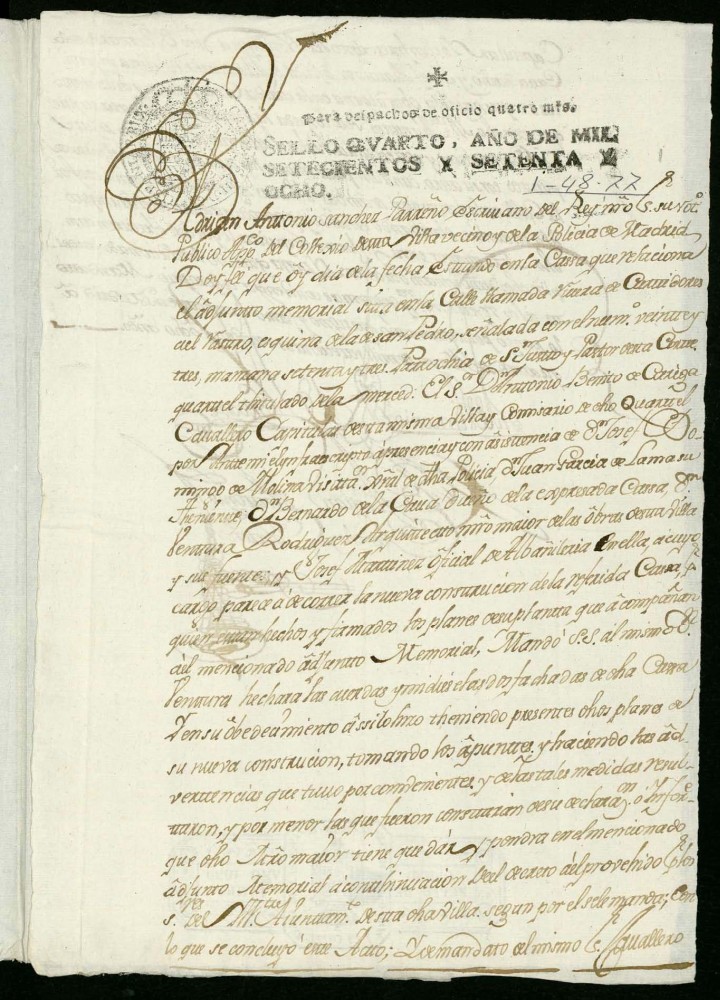 Para despachos de oficio quatro mrs.
SELLO QVARTO, AÑO DE MIL
SETECIENTOS Y SETENTA Y
OCHO.
1-48-77
Adrian Antonio Sanchez Parreño Escrivano del Rey nrô Sr. su
Publico App.co del Collexio desta Villa vecino y de la Policia de Madrid
Doy fee que oy dia de la fecha estando en la Cassa que relaciona
el adjunto memorial sita en la Calle llamada de Curtidores
del Rastro, esquina de la de San Pedro, señalada con el num.o veinte y
tres, manzana setenta y tres, Parrochia de Sn. Justo y Pastor desta Corte
quartel thitulado de la merced: El Sr. Dn. Antonio Benito de Cariga
Cavallero Capitular desta misma Villa y Comisario de dho Quartel
por ante mi el ynfraescripto a presencia y con asistencia de Dn. Josef Do-
mingo de Molina Visitador Grâl de dha Policia Dn. Juan Garcia de Lama su
Theniente, Dn. Bernardo de la Cava Dueño de la expresada Cassa, Dn.
Ventura Rodriguez Arquitecto mro maior de las obras desta Villa
y sus fuentes, y Josef Martinez oficial de Albañileria en ella, a cuyo
cargo parece a de correr la nueva construcion de la referida Cassa, pr.
quien estan hechos y firmados los planes de su planta que acompañan
al mencionado adjunto Memorial, Mandó S.S. al mismo Dn.
Ventura hechara las cuerdas y midiese las dos fachadas de dha Cassa
Y en su obedecimiento assi lo hizo theniendo presentes dhos planes de
su nueva construcion, tomando los apuntes, y haciendo las ad-
vertencias que tuvo por combenientes, y de las tales medidas resul-
taron, y por menor las que fueron constarán de su declaraon. o Infor-
que dho Mro maior tiene que dár y pondra en el mencionado
adjunto Memorial a continuacion del decreto a el provehido por los
s.res del M. Ille. Aiuntam.to desta dha Villa segun por el se le manda; con
lo que se concluyó este Acto; Y de mandato del mismo Sr. Cavallero